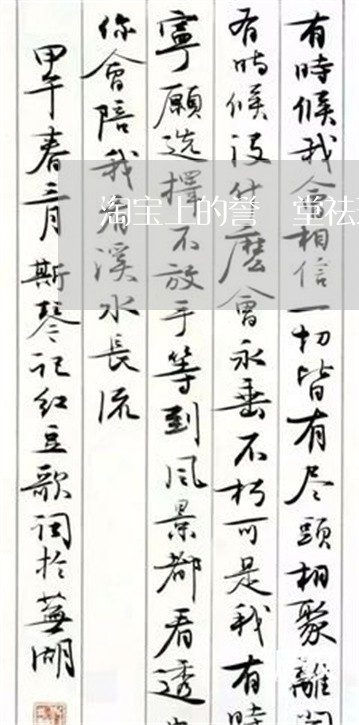 有時候我会相信一切皆有尽頭相聚離
有時候没什麽會永垂不朽可是我有時
寧願选擇不放手等到风景都看透
你會陪我看溪水長流
甲午春三月斯琴记红豆歌词於蕪湖
淘宝上的誉 堂祛